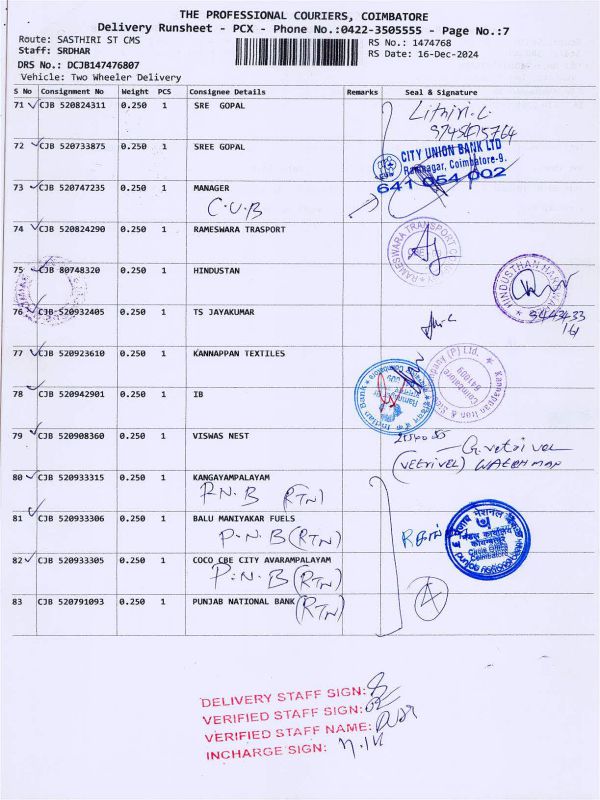 THE PROFESSIONAL COURIERS, COIMBATORE
Delivery Runsheet - PCX - Phone No.:0422-3505555 - Page No.:7
Route: SASTHIRI ST CMS
RS No.: 1474768
Staff: SRDHAR
RS Date: 16-Dec-2024
DRS No.: DCJB147476807
Vehicle: Two Wheeler Delivery
S No Consignment No Weight PCS Consignee Details Remarks Seal & Signature
71 CJB 520824311 0.250 1 SRE GOPAL
72 CJB 520733875 0.250 1 SREE GOPAL
CITY UNION BANK LTD
Ramnagar, Coimbatore-9.
641 054 002
73 CJB 520747235 0.250 1 MANAGER
C.U.B
74 CJB 520824290 0.250 1 RAMESWARA TRASPORT
RAMESWARA TRANSPORT
75 CJB 80748320 0.250 1 HINDUSTAN
76 CJB 520932405 0.250 1 TS JAYAKUMAR
77 CJB 520923610 0.250 1 KANNAPPAN TEXTILES
Kannappan Iron & Steel Company (P) Ltd.
Coimbatore
641009
78 CJB 520942901 0.250 1 IB
Indian Bank
79 CJB 520908360 0.250 1 VISWAS NEST
(VETRIVEL) WATCHMAN
80 CJB 520933315 0.250 1 KANGAYAMPALAYAM
P.N.B (RTN)
81 CJB 520933306 0.250 1 BALU MANIYAKAR FUELS
P.N.B (RTN)
पंजाब नैशनल बैंक
मंडल कार्यालय
कोयम्बतूर
Circle Office
Coimbatore
punjab national bank
82 CJB 520933305 0.250 1 COCO CBE CITY AVARAMPALAYAM
P.N.B (RTN)
83 CJB 520791093 0.250 1 PUNJAB NATIONAL BANK (RTN)
4
DELIVERY STAFF SIGN:
VERIFIED STAFF SIGN:
VERIFIED STAFF NAME:
INCHARGE SIGN: